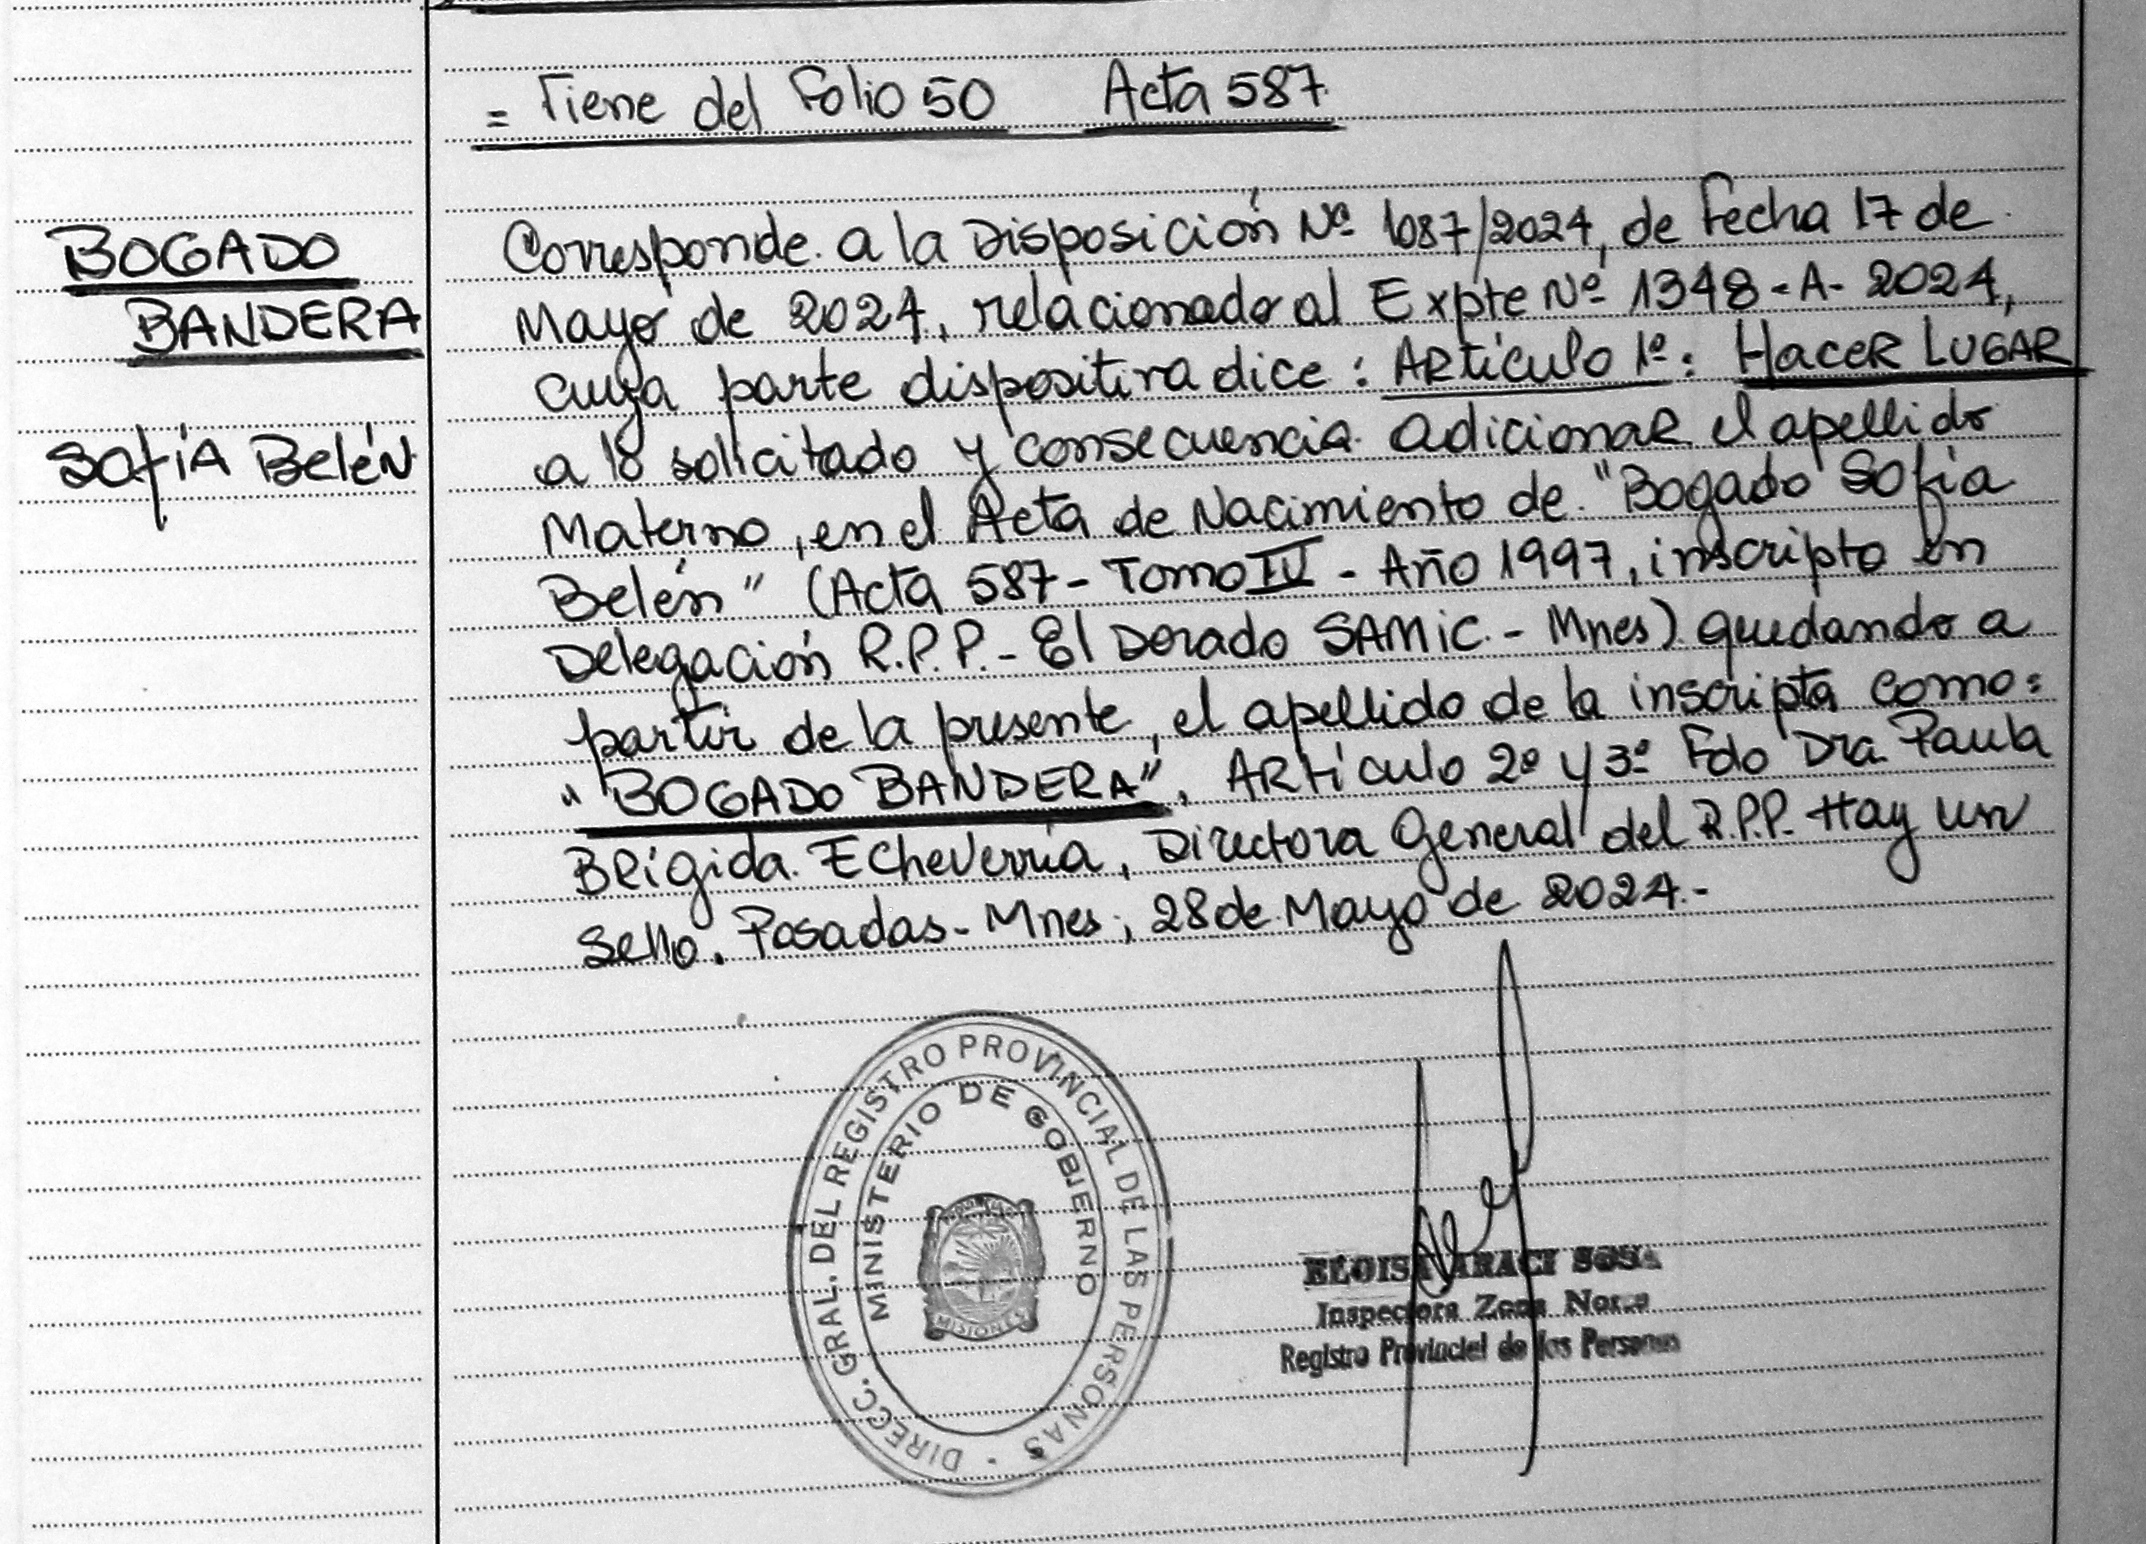 = Tiene del Folio 50 Acta 587
BOGADO
BANDERA
Sofía Belén
Corresponde a la Disposición Nº 1087/2024, de fecha 17 de
Mayo de 2024, relacionado al Expte Nº 1348-A-2024,
cuya parte dispositiva dice: ARtículo 1º: HACER LUGAR
a lo solicitado y consecuencia adicionar el apellido
Materno, en el Acta de Nacimiento de "Bogado Sofía
Belén" (Acta 587- Tomo IV - Año 1997, inscripto en
Delegación R.P.P.- El Dorado SAMIC - Mnes) quedando a
partir de la presente, el apellido de la inscripta como:
"BOGADO BANDERA". ARtículo 2º y 3º Fdo Dra Paula
Brígida Echeverría, Directora General del R.P.P. Hay un
Sello. Posadas - Mnes, 28 de Mayo de 2024.-
DIRECC. GRAL. DEL REGISTRO PROVINCIAL DE LAS PERSONAS
MINISTERIO DE GOBIERNO
MISIONES
ELOISA ARACI SOSA
Inspectora Zona Norte
Registro Provincial de las Personas